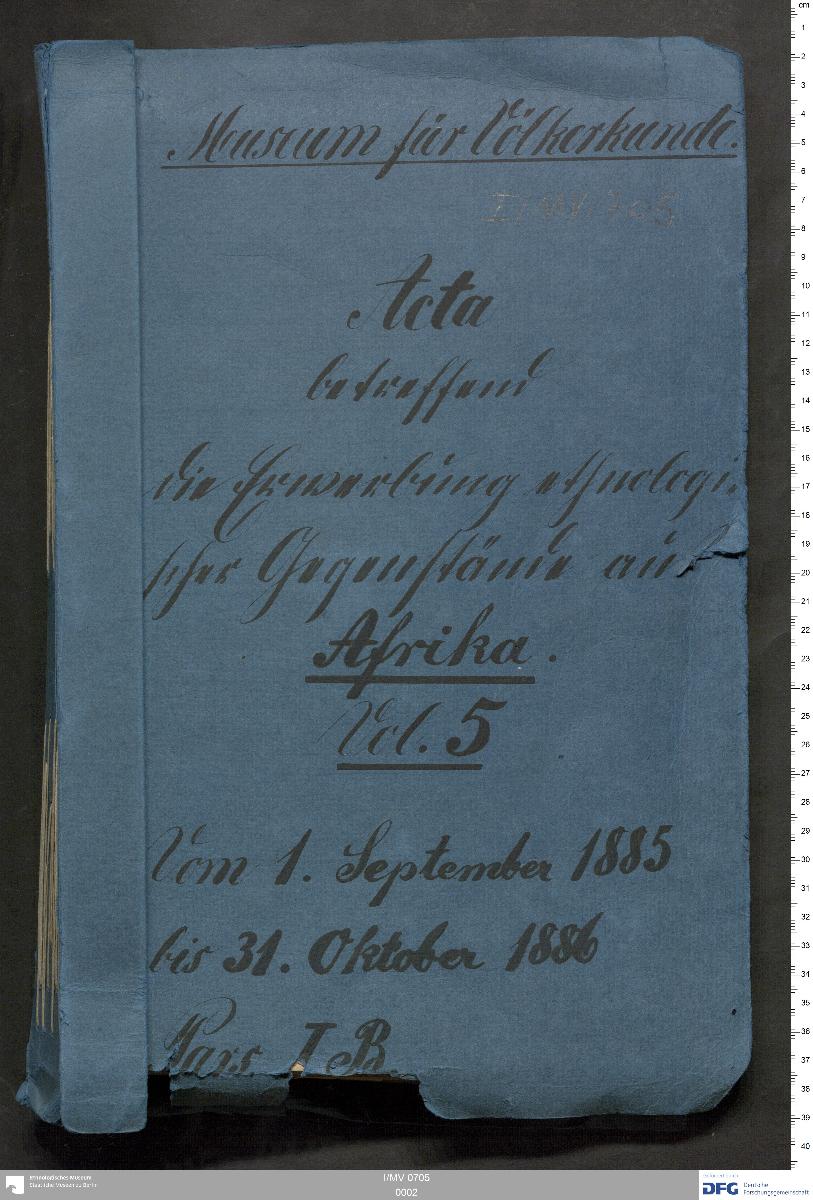 Museum für Völkerkunde.
I/MV. 705
Acta
betreffend
die Erwerbung ethnologi-
scher Gegenstände aus
Afrika.
Vol. 5
Vom 1. September 1885
bis 31. Oktober 1886
Pars I B.
cm
1
2
3
4
5
6
7
8
9
10
11
12
13
14
15
16
17
18
19
20
21
22
23
24
25
26
27
28
29
30
31
32
33
34
35
36
37
38
39
40
Ethnologisches Museum
Staatliche Museen zu Berlin
I/MV 0705
0002
gefördert durch
DFG Deutsche
Forschungsgemeinschaft